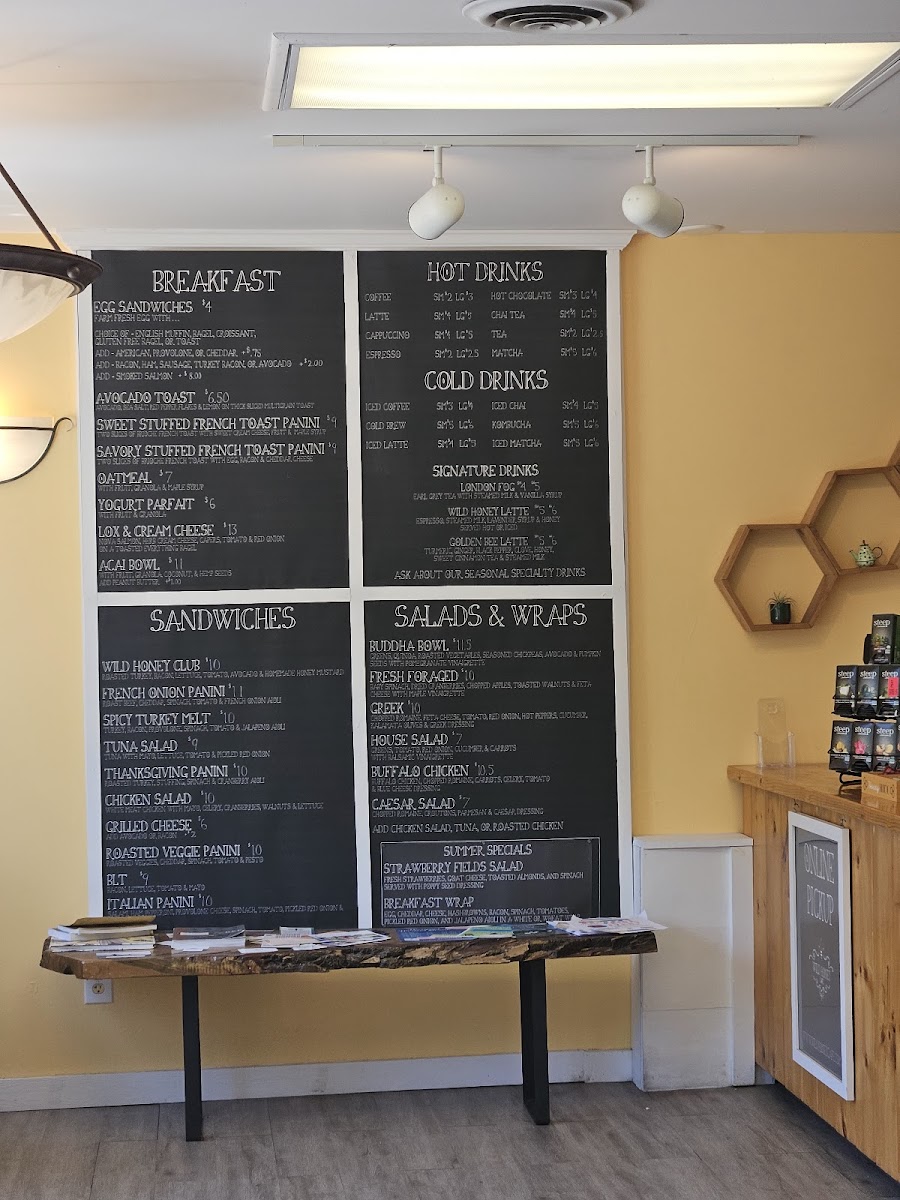 BREAKFAST
EGG SANDWICHES $4
FARM FRESH EGG WITH...
CHOICE OF - ENGLISH MUFFIN, BAGEL, CROISSANT,
GLUTEN FREE BAGEL, OR TOAST
ADD - AMERICAN, PROVOLONE, OR CHEDDAR +$.75
ADD - BACON, HAM, SAUSAGE, TURKEY BACON, OR AVOCADO +$2.00
ADD - SMOKED SALMON +$8.00
AVOCADO TOAST $6.50
AVOCADO, SEA SALT, RED PEPPER FLAKES & LEMON ON THICK SLICED MULTIGRAIN TOAST
SWEET STUFFED FRENCH TOAST PANINI $9
TWO SLICES OF BRIOCHE FRENCH TOAST WITH SWEET CREAM CHEESE, FRUIT & MAPLE SYRUP
SAVORY STUFFED FRENCH TOAST PANINI $9
TWO SLICES OF BRIOCHE FRENCH TOAST WITH EGG, BACON & CHEDDAR CHEESE
OATMEAL $7
WITH FRUIT, GRANOLA & MAPLE SYRUP
YOGURT PARFAIT $6
WITH FRUIT & GRANOLA
LOX & CREAM CHEESE $13
NOVA SALMON, HERB CREAM CHEESE, CAPERS, TOMATO & RED ONION
ON A TOASTED EVERYTHING BAGEL
ACAI BOWL $11
WITH FRUIT, GRANOLA, COCONUT, & HEMP SEEDS
ADD PEANUT BUTTER
HOT DRINKS
COFFEE SM $2 LG $3 HOT CHOCOLATE SM $3 LG $4
LATTE SM $4 LG $5 CHAI TEA SM $4 LG $5
CAPPUCCINO SM $4 LG $5 TEA SM $2 LG $2.5
ESPRESSO SM $2 LG $2.5 MATCHA SM $5 LG $6
COLD DRINKS
ICED COFFEE SM $3 LG $4 ICED CHAI SM $4 LG $5
COLD BREW SM $5 LG $6 KOMBUCHA SM $5 LG $6
ICED LATTE SM $4 LG $5 ICED MATCHA SM $5 LG $6
SIGNATURE DRINKS
LONDON FOG $4 $5
EARL GREY TEA WITH STEAMED MILK & VANILLA SYRUP
WILD HONEY LATTE $5 $6
ESPRESSO, STEAMED MILK, LAVENDER SYRUP & HONEY
SERVED HOT OR ICED
GOLDEN BEE LATTE $5 $6
TURMERIC, GINGER, BLACK PEPPER, CLOVE, HONEY,
SWEET CINNAMON TEA & STEAMED MILK
ASK ABOUT OUR SEASONAL SPECIALTY DRINKS
SANDWICHES
WILD HONEY CLUB $10
ROASTED TURKEY, BACON, LETTUCE, TOMATO, AVOCADO & HOMEMADE HONEY MUSTARD
FRENCH ONION PANINI $11
ROAST BEEF, CHEDDAR, SPINACH, TOMATO & FRENCH ONION AIOLI
SPICY TURKEY MELT $10
TURKEY, BACON, PROVOLONE, SPINACH, TOMATO & JALAPENO AIOLI
TUNA SALAD $9
TUNA WITH MAYO, LETTUCE, TOMATO & PICKLED RED ONION
THANKSGIVING PANINI $10
ROASTED TURKEY, STUFFING, SPINACH & CRANBERRY AIOLI
CHICKEN SALAD $10
WHITE MEAT CHICKEN WITH MAYO, CELERY, CRANBERRIES, WALNUTS & LETTUCE
GRILLED CHEESE $6
ADD AVOCADO OR BACON +$2
ROASTED VEGGIE PANINI $10
ROASTED VEGGIES, CHEDDAR, SPINACH, TOMATO & PESTO
BLT $9
BACON, LETTUCE, TOMATO & MAYO
ITALIAN PANINI $10
PROVOLONE CHEESE, SPINACH, TOMATO, PICKLED RED ONION &
SALADS & WRAPS
BUDDHA BOWL $11.5
GREENS, QUINOA, ROASTED VEGETABLES, SEASONED CHICKPEAS, AVOCADO & PUMPKIN
SEEDS WITH POMEGRANATE VINAIGRETTE
FRESH FORAGED $10
BABY SPINACH, DRIED CRANBERRIES, CHOPPED APPLES, TOASTED WALNUTS & FETA
CHEESE WITH MAPLE VINAIGRETTE
GREEK $10
CHOPPED ROMAINE, FETA CHEESE, TOMATO, RED ONION, HOT PEPPERS, CUCUMBER,
KALAMATA OLIVES & GREEK DRESSING
HOUSE SALAD $7
GREENS, TOMATO, RED ONION, CUCUMBER, & CARROTS
WITH BALSAMIC VINAIGRETTE
BUFFALO CHICKEN $10.5
BUFFALO CHICKEN, CHOPPED ROMAINE, CARROTS, CELERY, TOMATO
& BLUE CHEESE DRESSING
CAESAR SALAD $7
CHOPPED ROMAINE, CROUTONS, PARMESAN & CAESAR DRESSING
ADD CHICKEN SALAD, TUNA, OR ROASTED CHICKEN
SUMMER SPECIALS
STRAWBERRY FIELDS SALAD
FRESH STRAWBERRIES, GOAT CHEESE, TOASTED ALMONDS, AND SPINACH
SERVED WITH POPPY SEED DRESSING
BREAKFAST WRAP
EGG, CHEDDAR CHEESE, HASHBROWNS, BACON, SPINACH, TOMATOES,
PICKLED RED ONION, AND JALAPENO AIOLI IN A WHITE OR WHEAT
steep
steep
steep
steep
steep
steep
steep
ONLINE
PICKUP